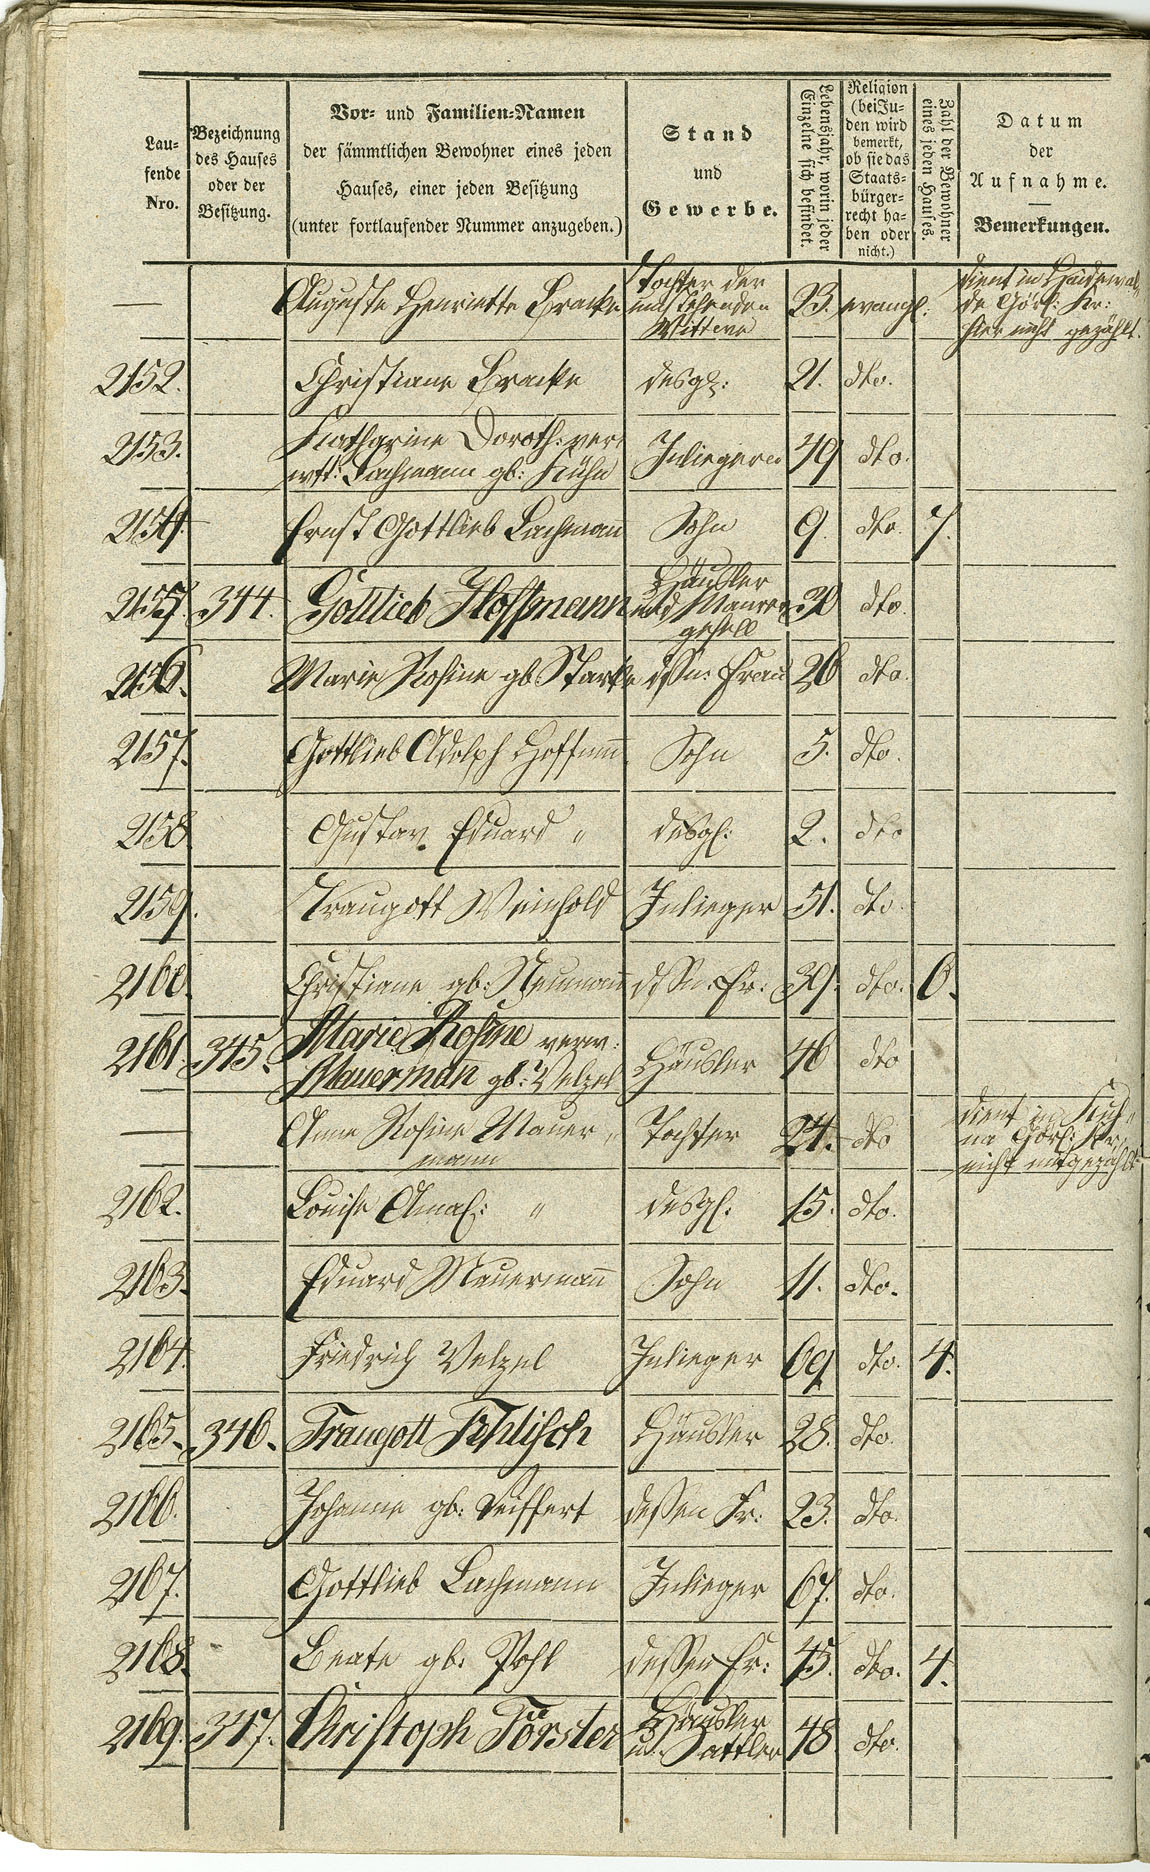 Lau=
fende
Nro.
Bezeichnung
des Hauses
oder der
Besitzung.
Vor- und Familien-Namen
der sämmtlichen Bewohner eines jeden
Hauses, einer jeden Besitzung
(unter fortlaufender Nummer anzugeben.)
Stand
und
Gewerbe.
Lebensjahr, worin jeder
Einzelne sich befindet.
Religion
(bei Ju-
den wird
bemerkt,
ob sie das
Staats-
bürger-
recht ha-
ben oder
nicht.)
Zahl der Bewohner
eines jeden Hauses.
Datum
der
Aufnahme.
Bemerkungen.
— Auguste Henriette Bracke Tochter der 23. evangl:
Wittwe
hier nicht gezählt.
2152. Christiane Bracke desgl: 21. dto.
2153. Katharine Doroth: ver
wtt: Lachmann gb: Kühn 49 dto.
2154. Ernst Gottlieb Lachmann Sohn 9. dto. 7.
2155. 344. Gottlieb Hoffmann Häusler
und Maurer dto.
gesell
2156. Marie Rosine gb. Starke dssn: Frau 26 dto.
2157. Gottlieb Adolph Hoffmann Sohn 5. dto.
2158 Gustav Eduard " desgl: 2. dto
2159. Traugott Weinhold Inlieger 51. dto.
2160. Christiane gb: Neumann dssn: Fr: 39. dto. 6.
2161. 345. Marie Rosine verw:
Mauermann gb: Velzel Häusler 46 dto
— Anne Rosine Mauer " Tochter 24. dto
mann
nicht mitgezählt
2162. Louise Amal: " desgl: 15. dto.
2163. Eduard Mauermann Sohn 11. dto.
2164. Friedrich Velzel Inlieger 69 dto. 4.
2165. 346. Traugott Fehlisch Häusler 28. dto.
2166. Johanne gb: Seiffert dessen Fr: 23. dto.
2167. Gottlieb Lachmann Inlieger 67. dto.
2168. Beate gb: Pohl dessen Fr: 45. dto. 4.
2169. 347. Christoph Förster Häusler
u. Sattler 48 dto.